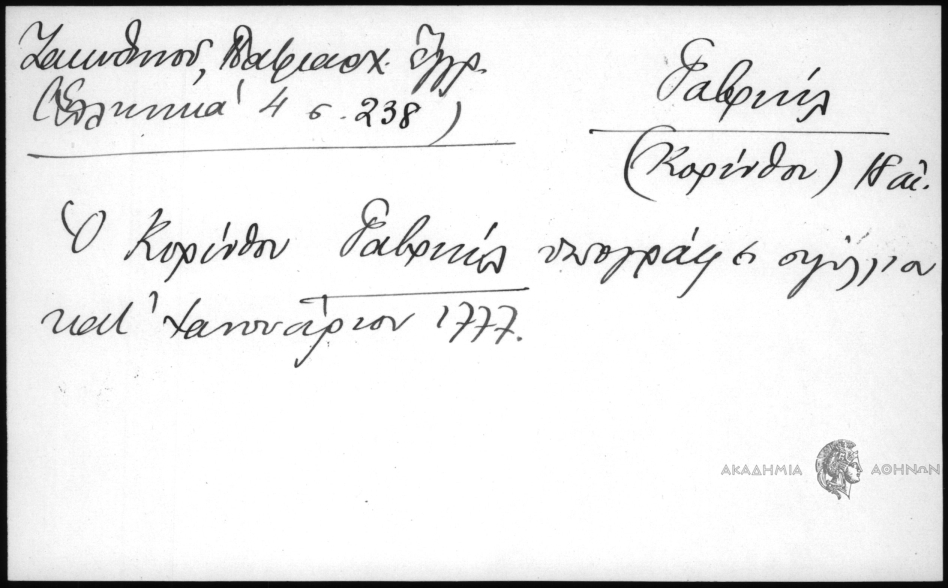 Ζακυθηνοῦ, Πατριαρχ. ἔγγρ.
(Ἑλληνικά 4 σ. 238)
Γαβριήλ
(Κορίνθου) 18 αἰ.
Ὁ Κορίνθου Γαβριήλ υπογράφει σιγίλλιον
κατ' Ιανουάριον 1777.
ΑΚΑΔΗΜΙΑ ΑΘΗΝΩΝ